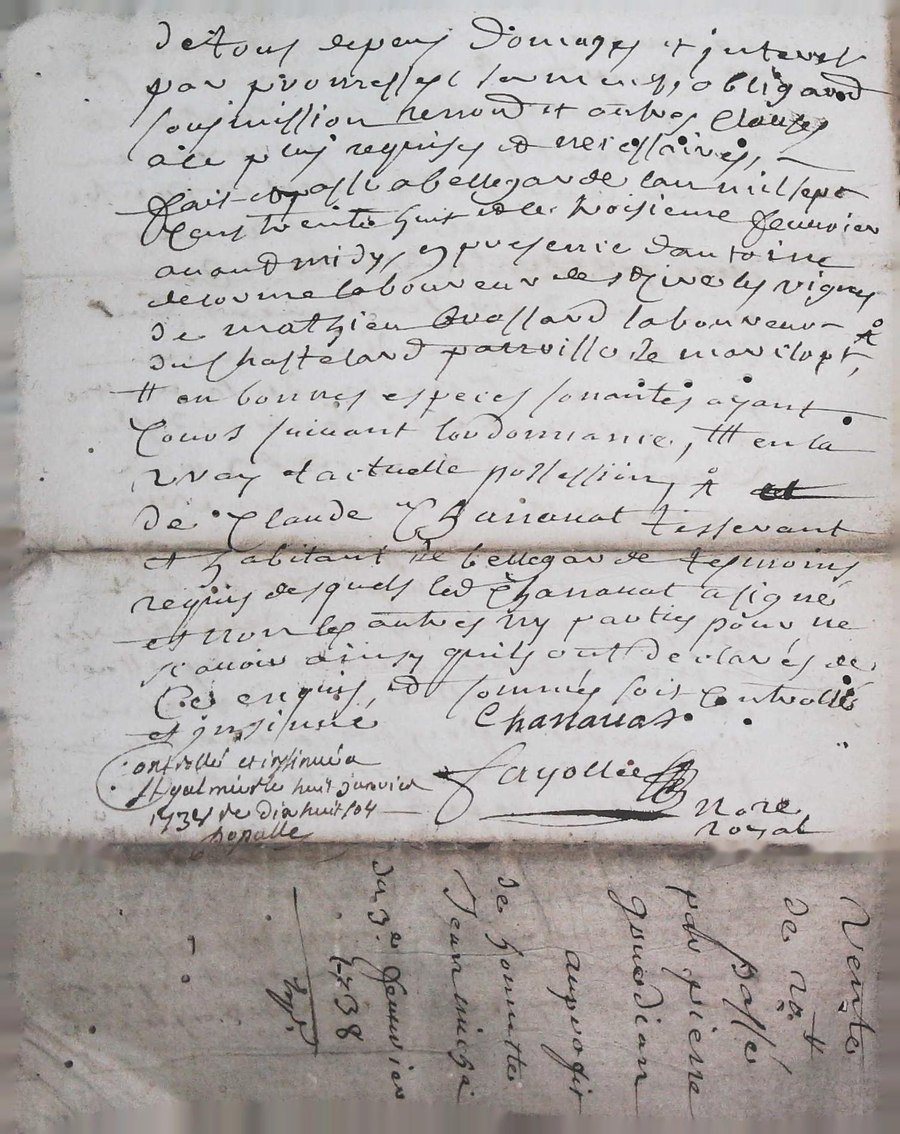 de tous depens domages et interest
par promesses serment, obligaõn
sousmission renonõn et autres clauses
à ce plus requises et necessaires,
fait et passé a bellegarde lan mil sept
cens trente huit et le troisieme feuvrier
auant midy, en presence dantoine
delorme laboureur de st Cire les vignes
de mathieu laboureur
du Chastelard parroisse de
# en bonnes especes sonantes ayant
cours suiuant lordonnance, ## en la
vray et actuelle possession,
de Claude Chanauat tisserant
et habitant de bellegarde tesmoins
requis desquels led Chanauat a signé
et non les autres ny parties pour ne
scauoir ainsy quils ont declarés de
ce enquis, et sommés sois controllé
et insinué
Chanauat
Controllé et insinué a
St galmier le huit
173 re dix huit sol
fayolle
nore
royal
Vente
de
passé
par pierre
au profit
de honneste
Jean
du 3e feuvrier
1738